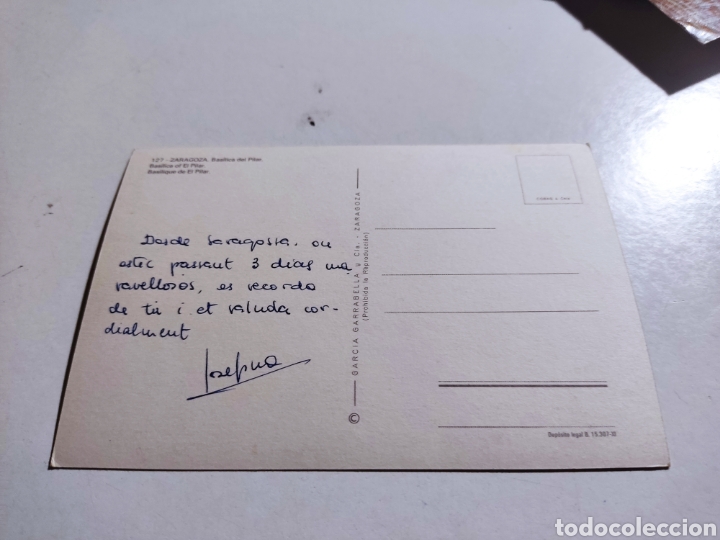 127 - ZARAGOZA. Basílica del Pilar.
Basilica of El Pilar.
Basilique de El Pilar.
Desde Saragossa, on
estic passant 3 dias ma
ravellosos, es recordo
de tu i et saluda cor-
dialment
Josefina
© GARCIA GARRABELLA y Cía. - ZARAGOZA
(Prohibida la Reproducción)
Depósito legal B. 15.397-XI
todocoleccion